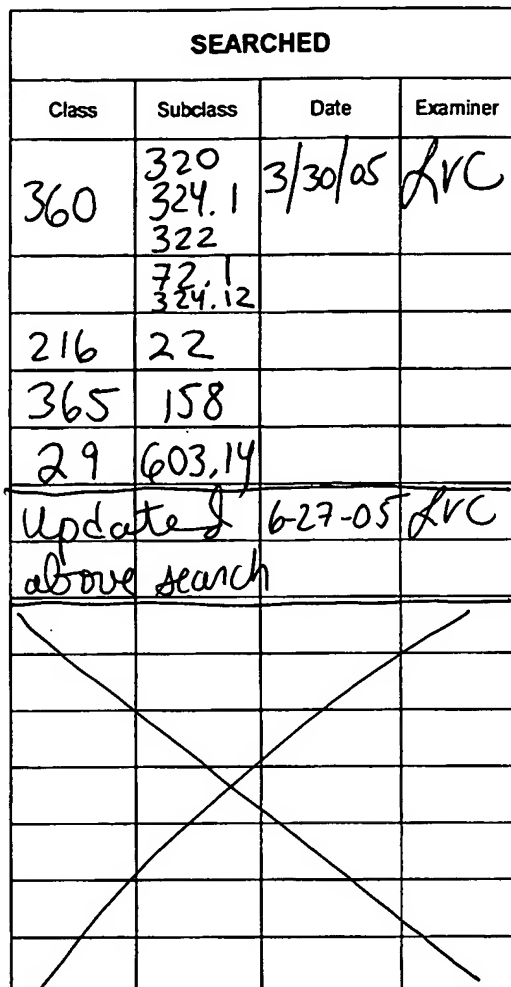 SEARCHED
Class Subclass Date Examiner
360 320 3/30/05 LVC
324.1
322
72.1
324.12
216 22
365 158
29 603.14
Updated 6-27-05 LVC
above search